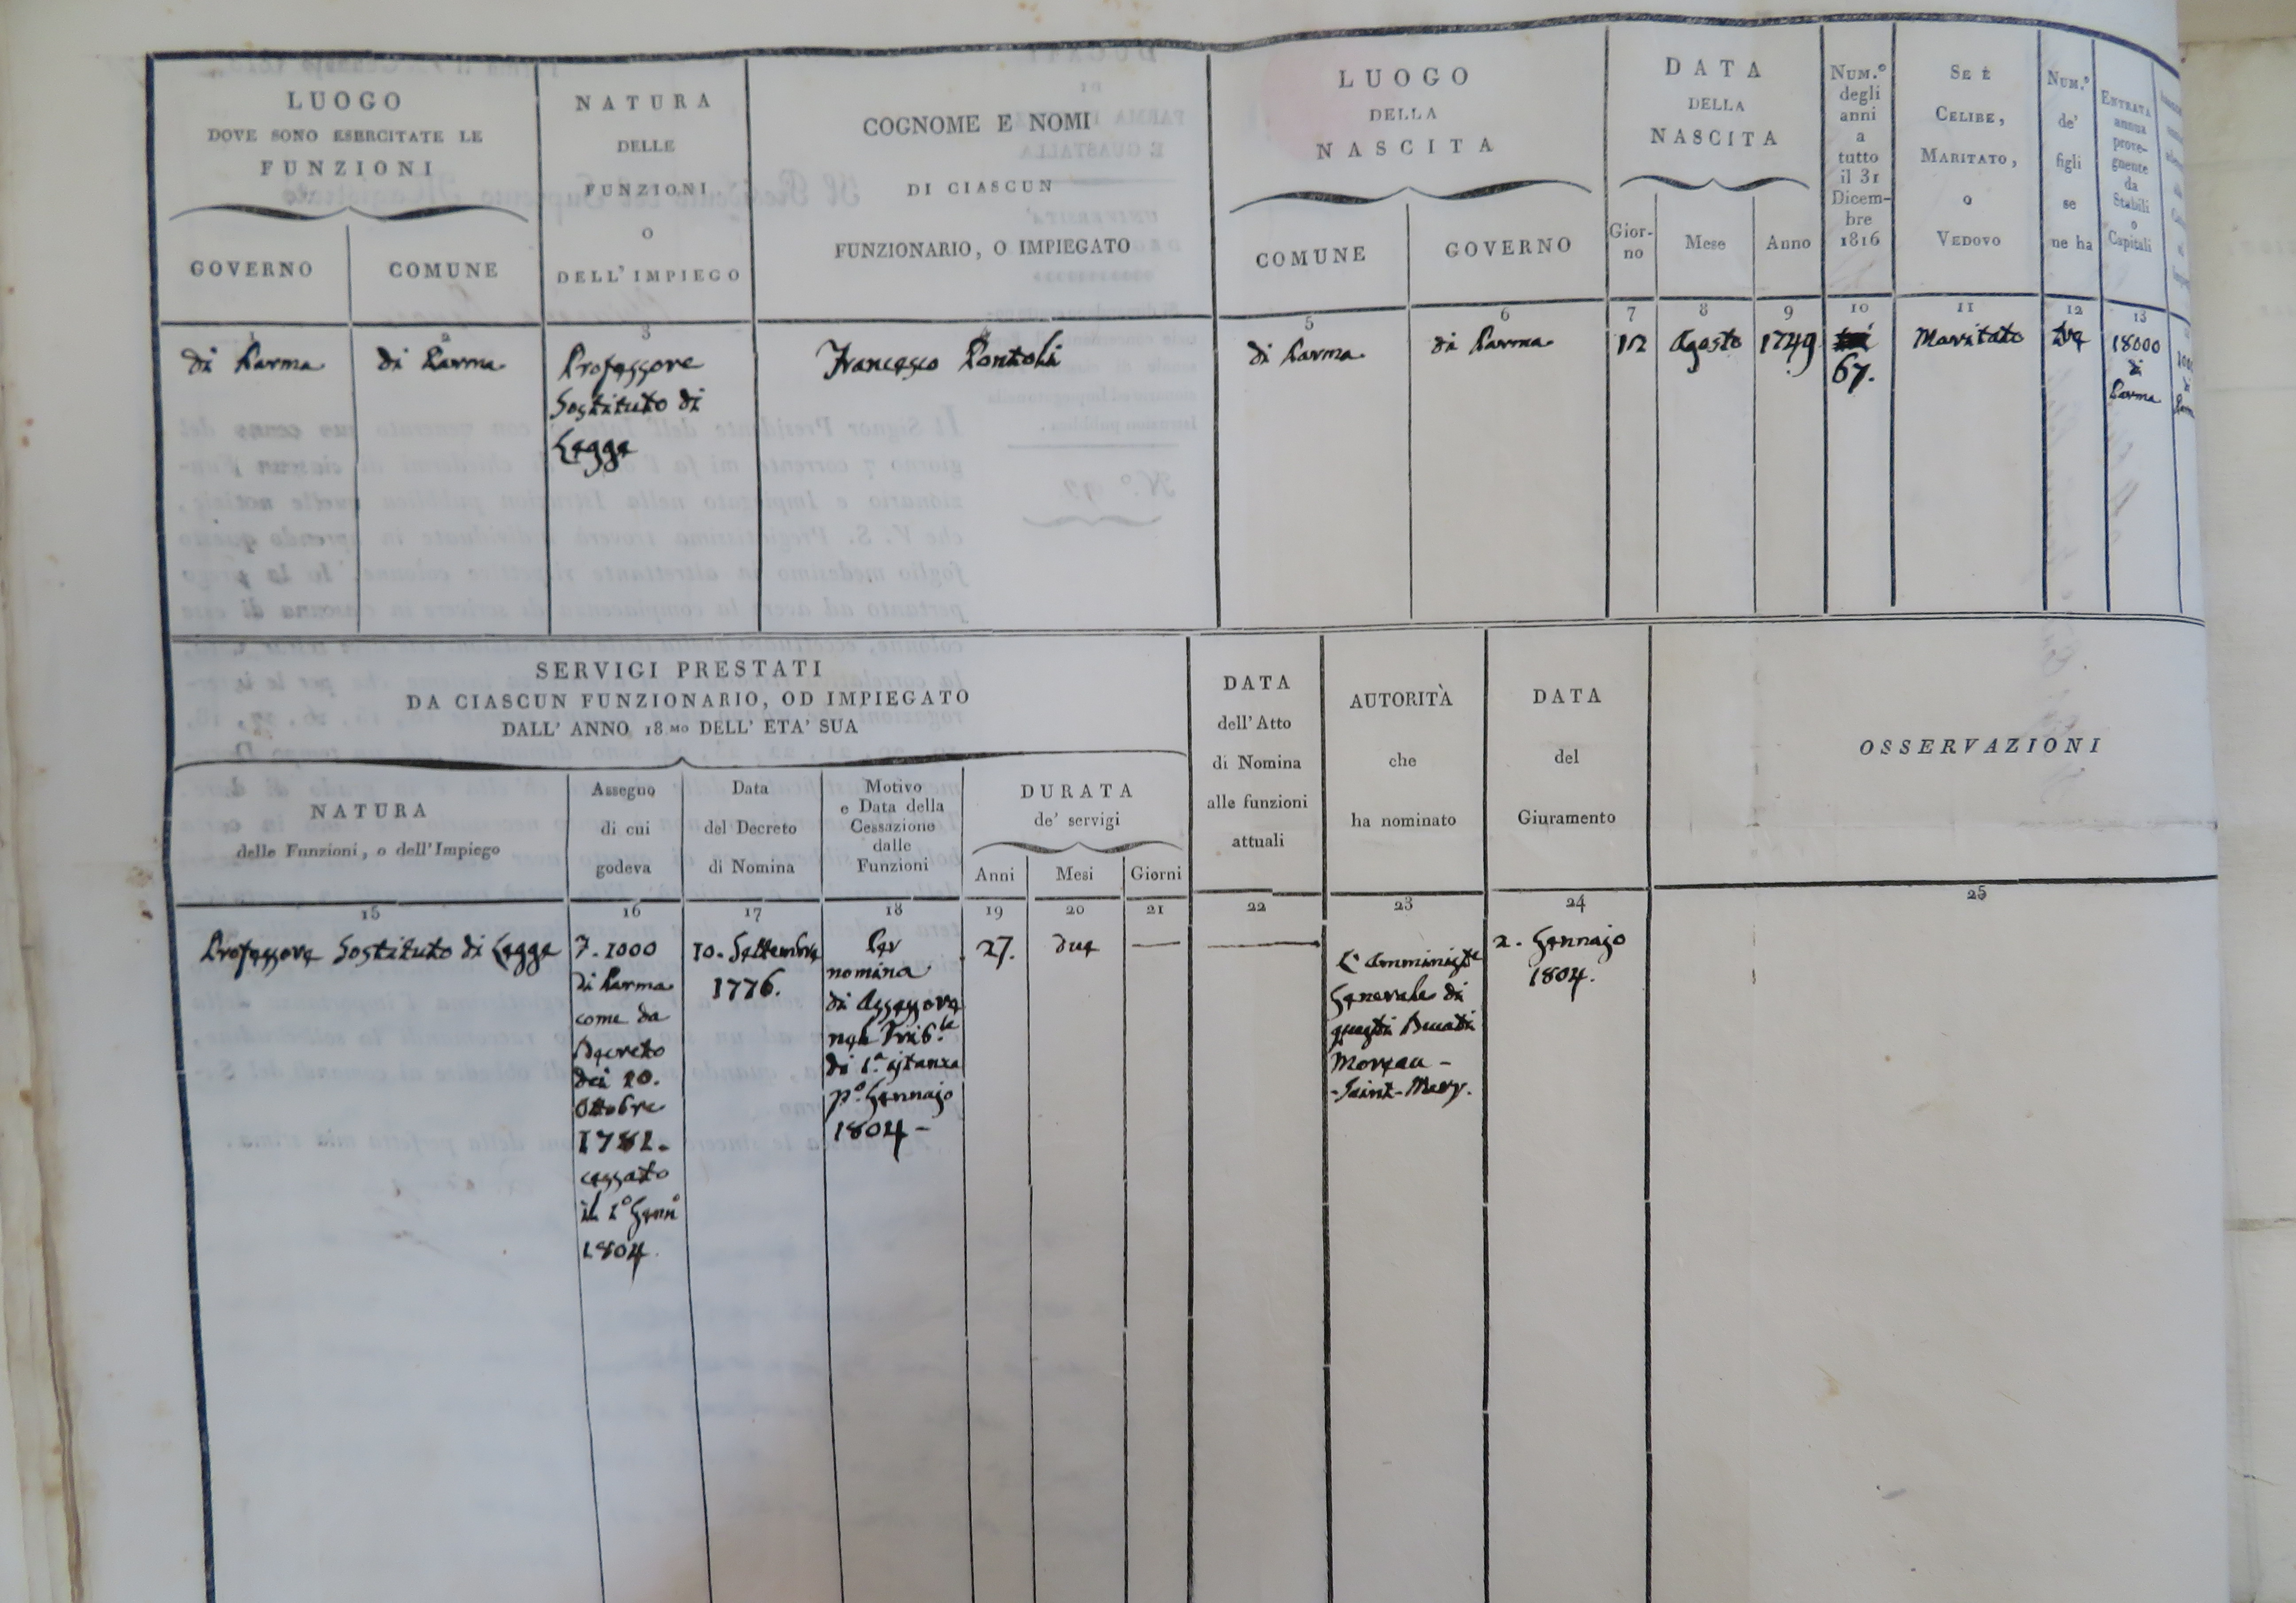 LUOGO
DOVE SONO ESERCITATE LE
FUNZIONI
GOVERNO
COMUNE
NATURA
DELLE
FUNZIONI
O
DELL' IMPIEGO
COGNOME E NOMI
DI CIASCUN
FUNZIONARIO, O IMPIEGATO
LUOGO
DELLA
NASCITA
COMUNE
GOVERNO
DATA
DELLA
NASCITA
Gior-
no
Mese
Anno
NUM.º
degli
anni
a
tutto
il 31
Dicem-
bre
1816
SE È
CELIBE,
MARITATO,
O
VEDOVO
NUM.º
de'
figli
se
ne ha
ENTRATA
annua
prove-
gnente
da
Stabili
o
Capitali
1
2
3
4
5
6
7
8
9
10
11
12
13
di Parma
di Parma
Professore
Sostituto di
Legge
Francesco Pontoli
di Parma
di Parma
12
Agosto
1749
67.
Maritato
due
18000
di
Parma
SERVIGI PRESTATI
DA CIASCUN FUNZIONARIO, OD IMPIEGATO
DALL' ANNO 18.MO DELL' ETA' SUA
NATURA
delle Funzioni, o dell'Impiego
Assegno
di cui
godeva
Data
del Decreto
di Nomina
Motivo
e Data della
Cessazione
dalle
Funzioni
DURATA
de' servigi
Anni
Mesi
Giorni
DATA
dell' Atto
di Nomina
alle funzioni
attuali
AUTORITÀ
che
ha nominato
DATA
del
Giuramento
OSSERVAZIONI
15
16
17
18
19
20
21
22
23
24
25
Professore Sostituto di Legge
7. 1000
di Parma
come da
Decreto
dei 20.
Ottobre
1781.
cessato
il 1º Genº
1804.
10. Settembre
1776.
Per
nomina
di Assessore
nel Trib.le
di 1.a istanza
pº. Gennajo
1804 -
27.
due
L'Amministre
Generale di
questi Ducati
Moreau -
- Saint - Mery.
2. Gennajo
1804.